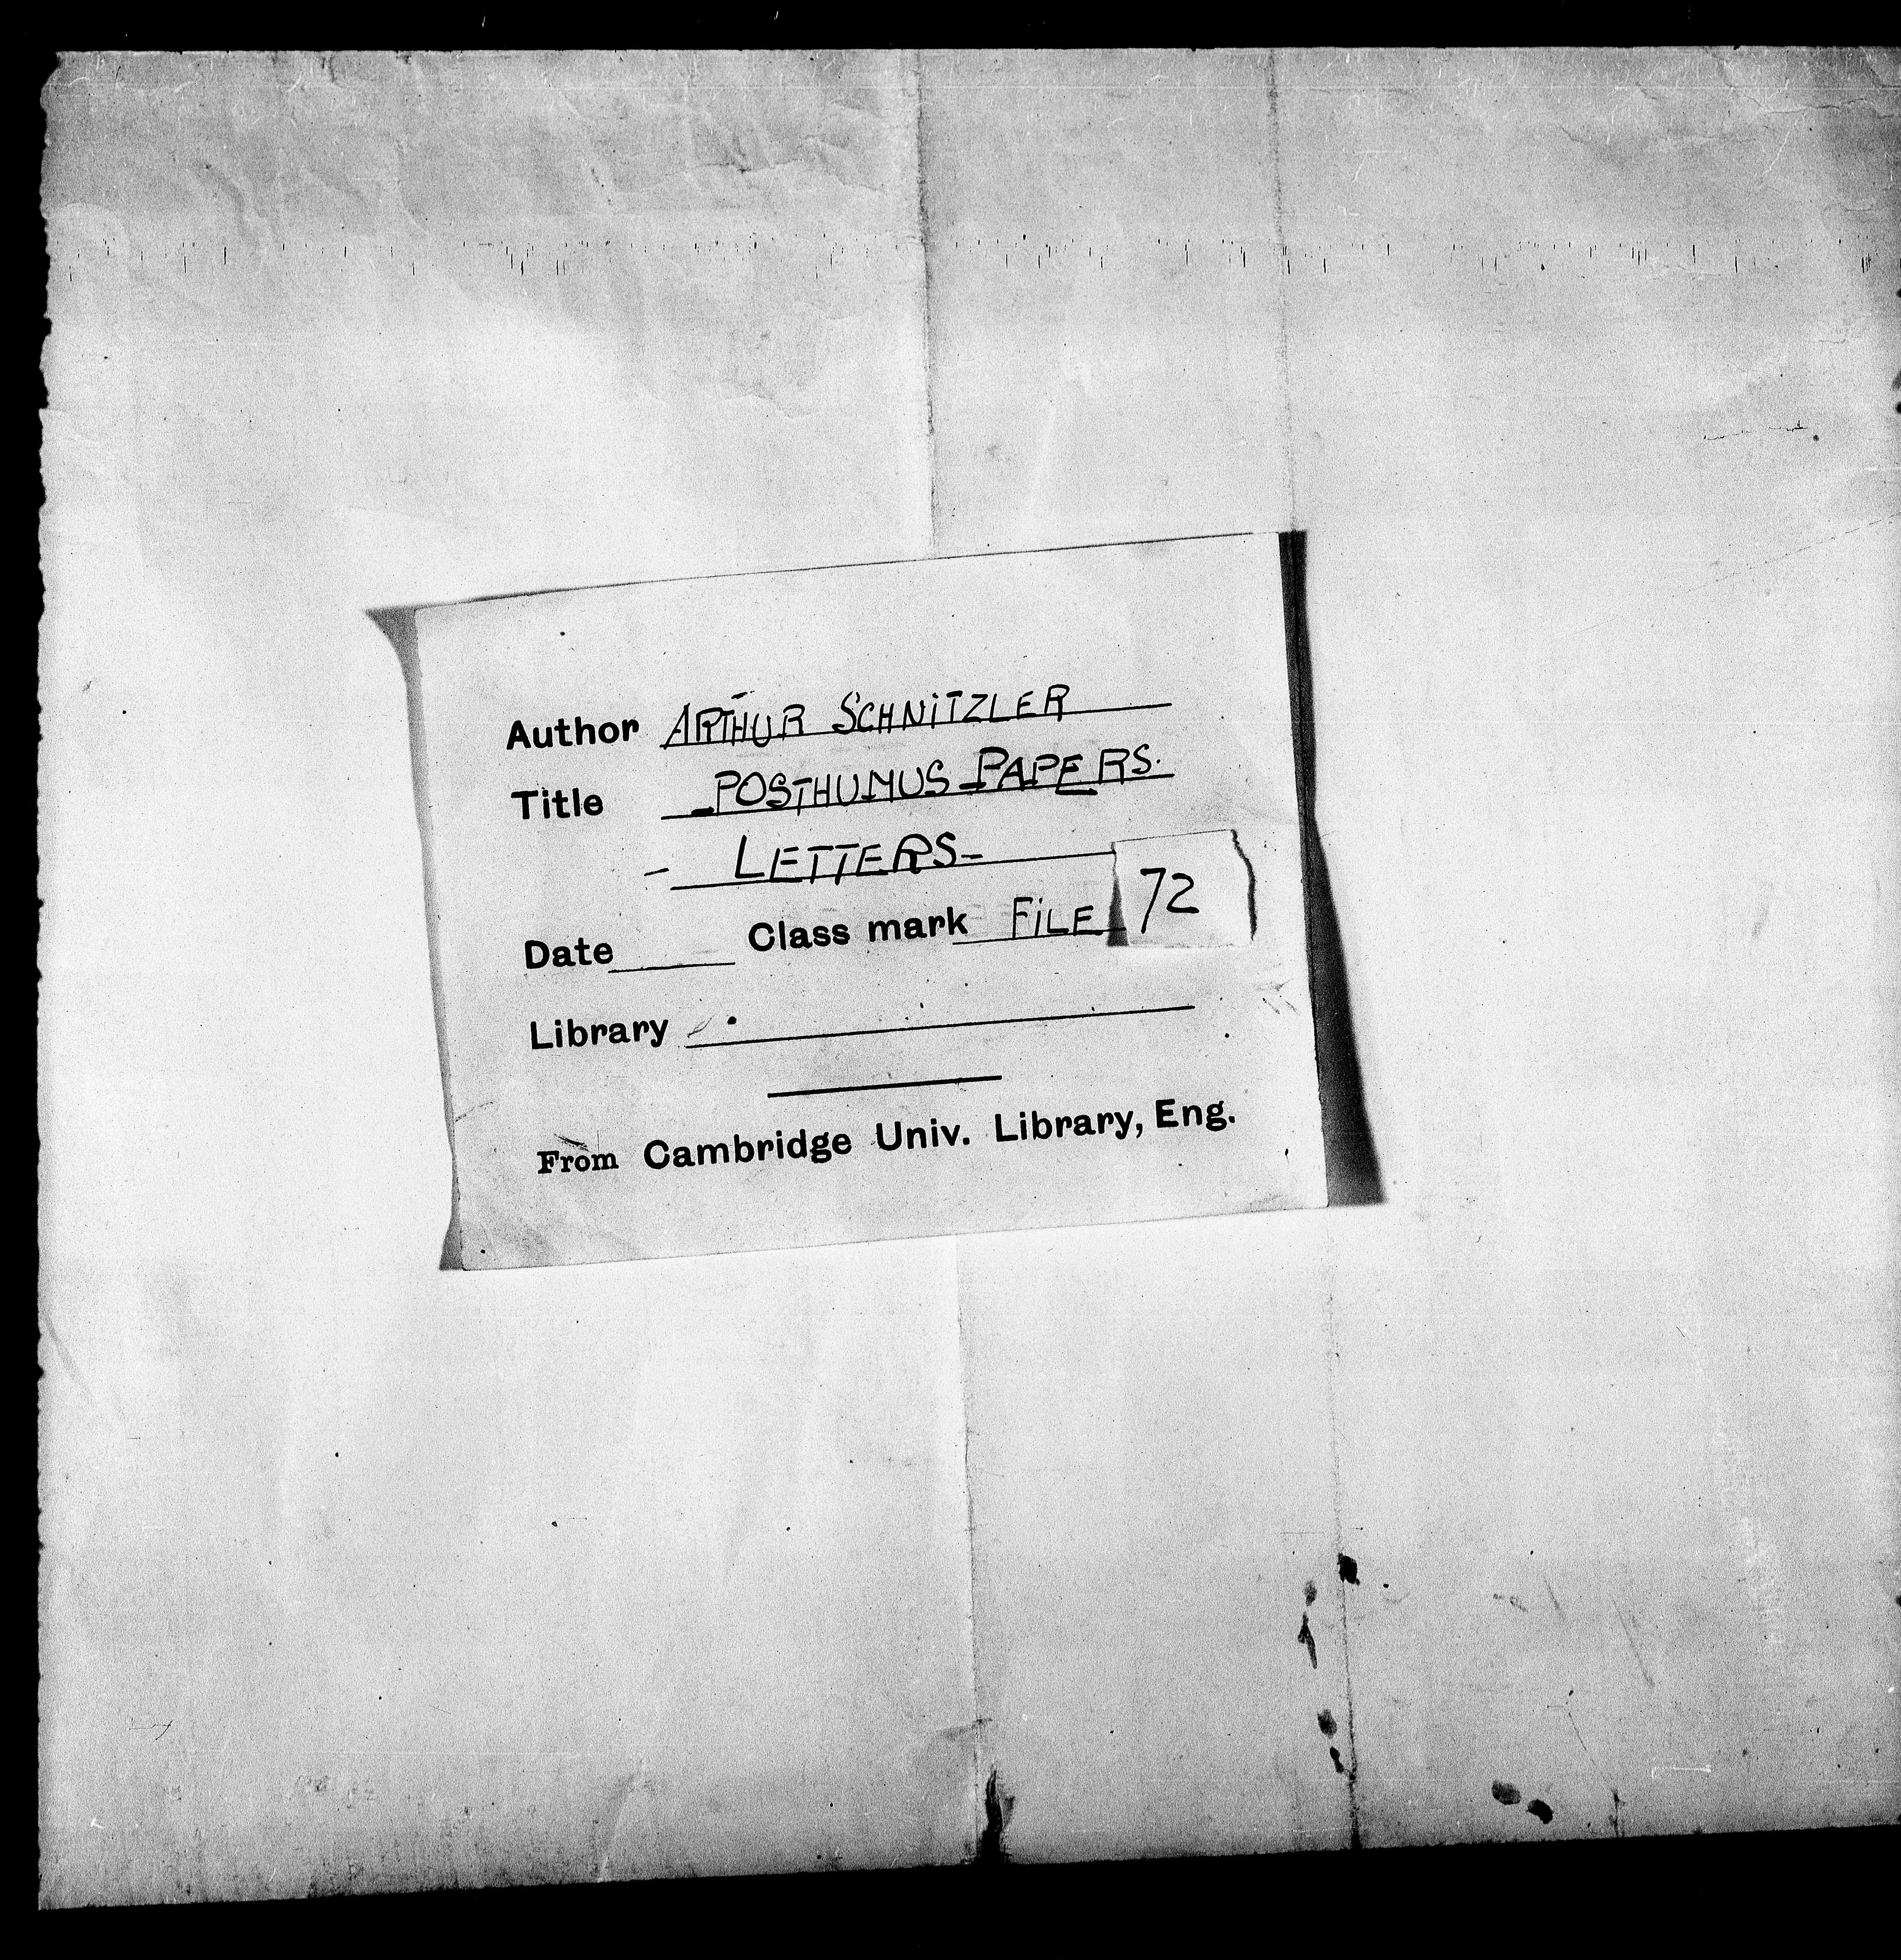 Author ARTHUR SCHNITZLER
Title POSTHUMUS PAPERS.
- LETTERS -
Date Class mark FILE 72
Library
From Cambridge Univ. Library, Eng.